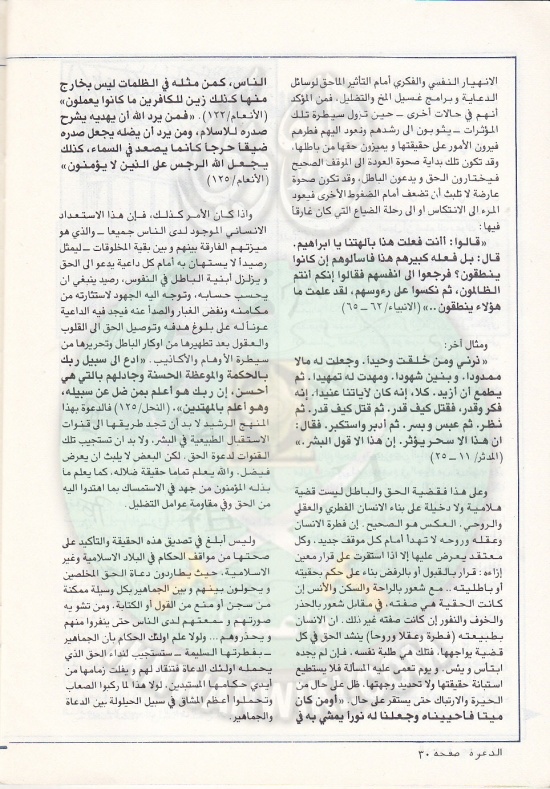 الانهيار النفسي والفكري أمام التأثير الماحق لوسائل
الدعاية و برامج غسيل المخ والتضليل، فمن المؤكد
أنهم في حالات أخرى ــ حين تزول سيطرة تلك
المؤثرات ــ يثوبون الى رشدهم وتعود اليهم فطرهم
فيرون الأمور على حقيقتها و يميزون حقها من باطلها،
وقد تكون تلك بداية صحوة العودة الى الموقف الصحيح
فيختارون الحق و يدعون الباطل، وقد تكون صحوة
عارضة لا تلبث أن تضعف أمام الضغوط الأخرى فيعود
المرء الى الانتكاس او الى رحلة الضياع التي كان غارقاً
فيها:
«قالوا: أأنت فعلت هذا بآلهتنا يا ابراهيم.
قال: بل فعله كبيرهم هذا فاسألوهم إن كانوا
ينطقون؟ فرجعوا الى انفسهم فقالوا إنكم أنتم
الظالمون، ثم نكسوا على رءوسهم، لقد علمت ما
هؤلاء ينطقون..» (الانبياء/ ٦٢ ــ ٦٥)
ومثال آخر:
«ذرني ومن خلقت وحيداً. وجعلت له مالا
ممدودا. و بنين شهودا. ومهدت له تمهيدا. ثم
يطمع أن أزيد. كلا، إنه كان لآياتنا عنيدا. إنه
فكر وقدر، فقتل كيف قدر. ثم قتل كيف قدر. ثم
نظر. ثم عبس و بسر. ثم أدبر واستكبر. فقال:
ان هذا الا سحر يؤثر. إن هذا الا قول البشر.»
(المدثر/ ١١ ــ ٢٥)
وعلى هذا فقضية الحق والباطل ليست قضية
هلامية ولا دخيلة على بناء الانسان الفطري والعقلي
والروحي. العكس هو الصحيح. إن فطرة الانسان
وعقله وروحه لا تهدأ أمام كل موقف جديد، وكل
معتقد يعرض عليها إلا اذا استقرت على قرار معين
إزاءه: قرار بالقبول أو بالرفض بناء على حكم بحقيته
أو باطليته.. مع شعور بالراحة والسكن والأنس إن
كانت الحقية هي صفته، في مقابل شعور بالحذر
والخوف والنفور إن كانت صفته غير ذلك. ان الانسان
بطبيعته (فطرة وعقلا وروحا) ينشد الحق في كل
قضية يواجهها. فتلك هي طلبة نفسه. فإن لم يجده
ابتأس و يئس. و يوم تعمى عليه المسألة فلا يستطيع
استبانة حقيقتها ولا تحديد وجهتها. ظل على حال من
الحيرة والارتباك حتى يستقر على حال. «أومن كان
ميتا فأحييناه وجعلنا له نوراً يمشي به في
الناس، كمن مثله في الظلمات ليس بخارج
منها كذلك زين للكافرين ما كانوا يعملون»
(الأنعام/١٢٢). «فمن يرد الله أن يهديه يشرح
صدره للاسلام، ومن يرد أن يضله يجعل صدره
ضيقا حرجا كأنما يصعد في السماء، كذلك
يجعل الله الرجس على الذين لا يؤمنون»
(الأنعام/ ١٢٥)
واذا كان الأمر كذلك، فإن هذا الاستعداد
الانساني الموجود لدى الناس جميعا ــ والذي هو
ميزتهم الفارقة بينهم و بين بقية المخلوقات ــ ليمثل
رصيداً لا يستهان به أمام كل داعية يدعو الى الحق
و يزلزل أبنية الباطل في النفوس، رصيد ينبغي ان
يحسب حسابه، وتوجه اليه الجهود لاستثارته من
مكامنه ونفض الغبار والصدأ عنه فيجد فيه الداعية
عوناً له على بلوغ هدفه وتوصيل الحق الى القلوب
والعقول بعد تطهيرها من أوكار الباطل وتحريرها من
سيطرة الأوهام والأكاذيب. «ادع الى سبيل ربك
بالحكمة والموعظة الحسنة وجادلهم بالتي هي
أحسن، إن ربك هو أعلم بمن ضل عن سبيله،
وهو أعلم بالمهتدين». (النحل/ ١٢٥) فالدعوة بهذا
المنهج الرشيد لا بد أن تجد طريقها الى قنوات
الاستقبال الطبيعية في البشر، ولا بد ان تستجيب تلك
القنوات لدعوة الحق. لكن البعض لا يلبث ان يعرض
فيضل. والله يعلم تماما حقيقة ضلاله، كما يعلم ما
بذله المؤمنون من جهد في الاستمساك بما اهتدوا اليه
من الحق وفي مقاومة عوامل التضليل.
وليس أبلغ في تصديق هذه الحقيقة والتأكيد على
صحتها من مواقف الحكام في البلاد الاسلامية وغير
الاسلامية، حيث يطاردون دعاة الحق المخلصين
و يحولون بينهم و بين الجماهير بكل وسيلة ممكنة
من سجن أو منع من القول أو الكتابة. ومن تشويه
صورتهم و سمعتهم لدى الناس حتى ينفروا منهم
و يحذروهم... ولولا علم اولئك الحكام بأن الجماهير
ــ بفطرتها السليمة ــ ستستجيب لنداء الحق الذي
يحمله اولئك الدعاة فتنقاد لهم و يفلت زمامها من
أيدي حكامها المستبدين. لولا هذا لما ركبوا الصعاب
وتحملوا أعظم المشاق في سبيل الحيلولة بين الدعاة
والجماهير.
الدعوة صفحه ٣٠